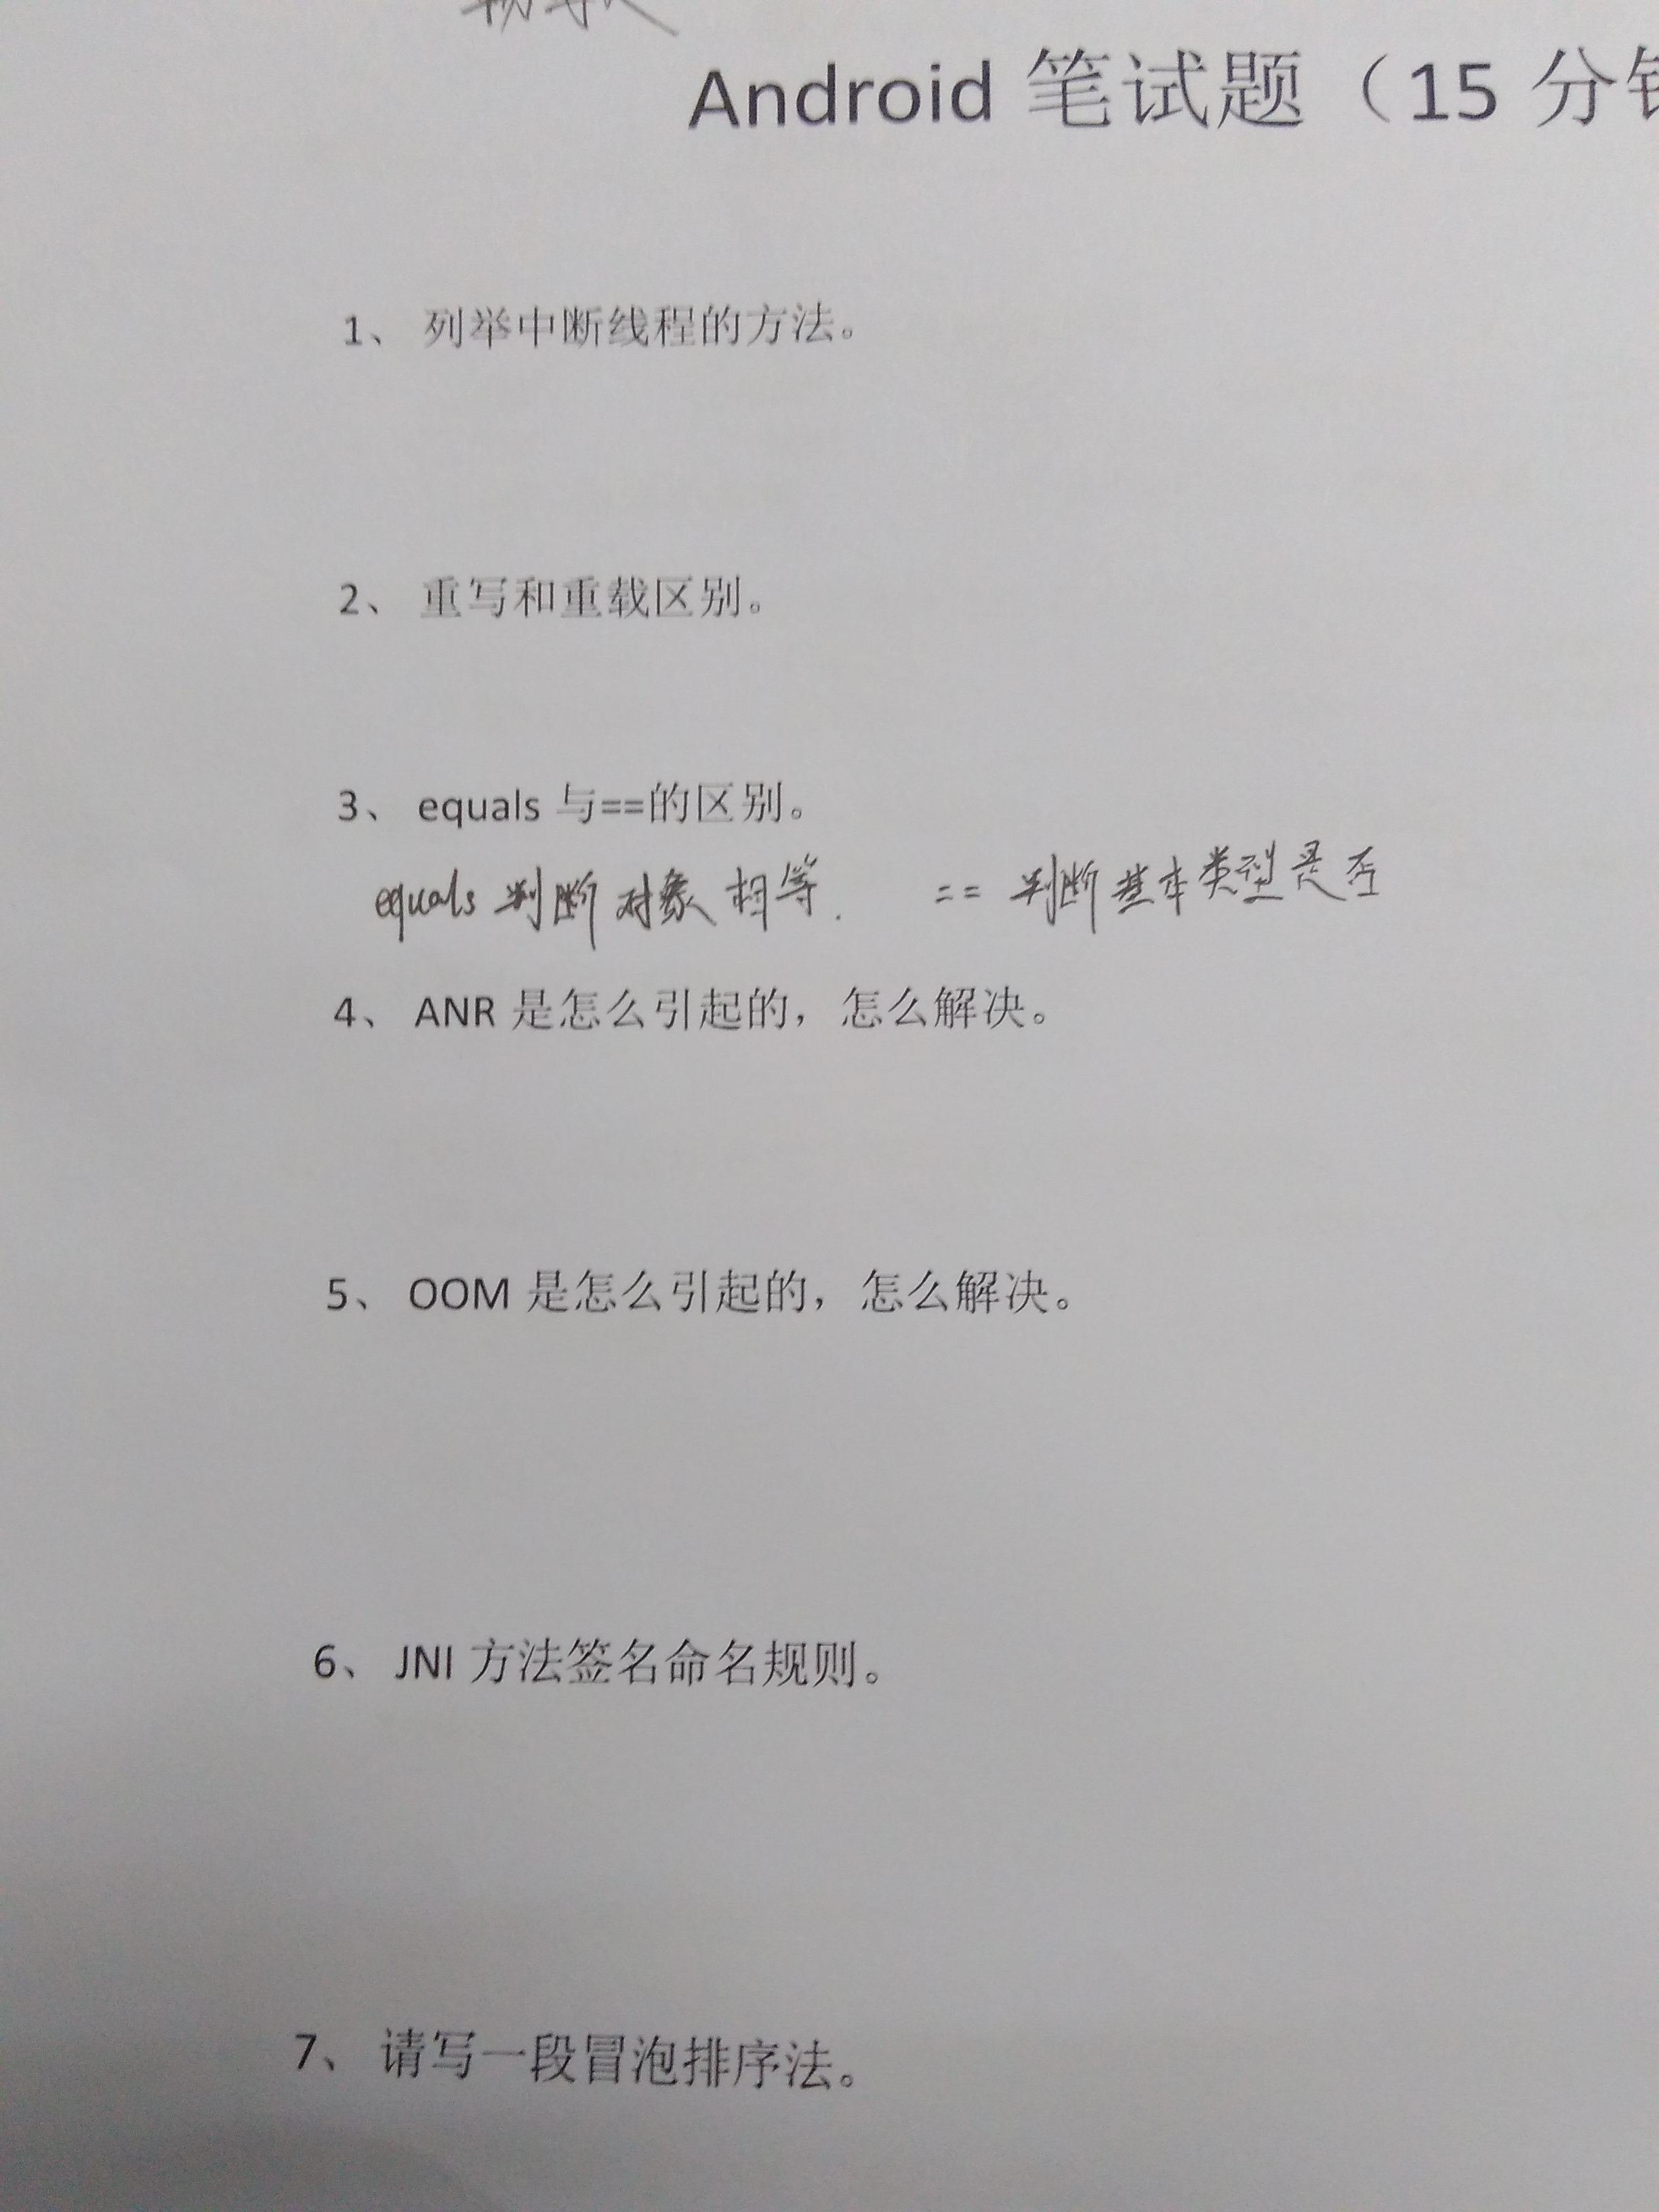 Android 笔试题（15 分
1、 列举中断线程的方法。
2、 重写和重载区别。
3、 equals 与==的区别。
equals 判断对象相等. == 判断基本类型是否
4、 ANR 是怎么引起的，怎么解决。
5、 OOM 是怎么引起的，怎么解决。
6、 JNI 方法签名命名规则。
7、 请写一段冒泡排序法。